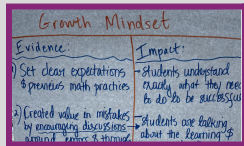 Growth Mindset
Evidence:
1) Set clear expectations
& previews math practices
2) Created value in mistakes
by encouraging discussions
around errors & through
Impact:
- students understand
exactly what they need
to do to be successful
- students are talking
about the learning &